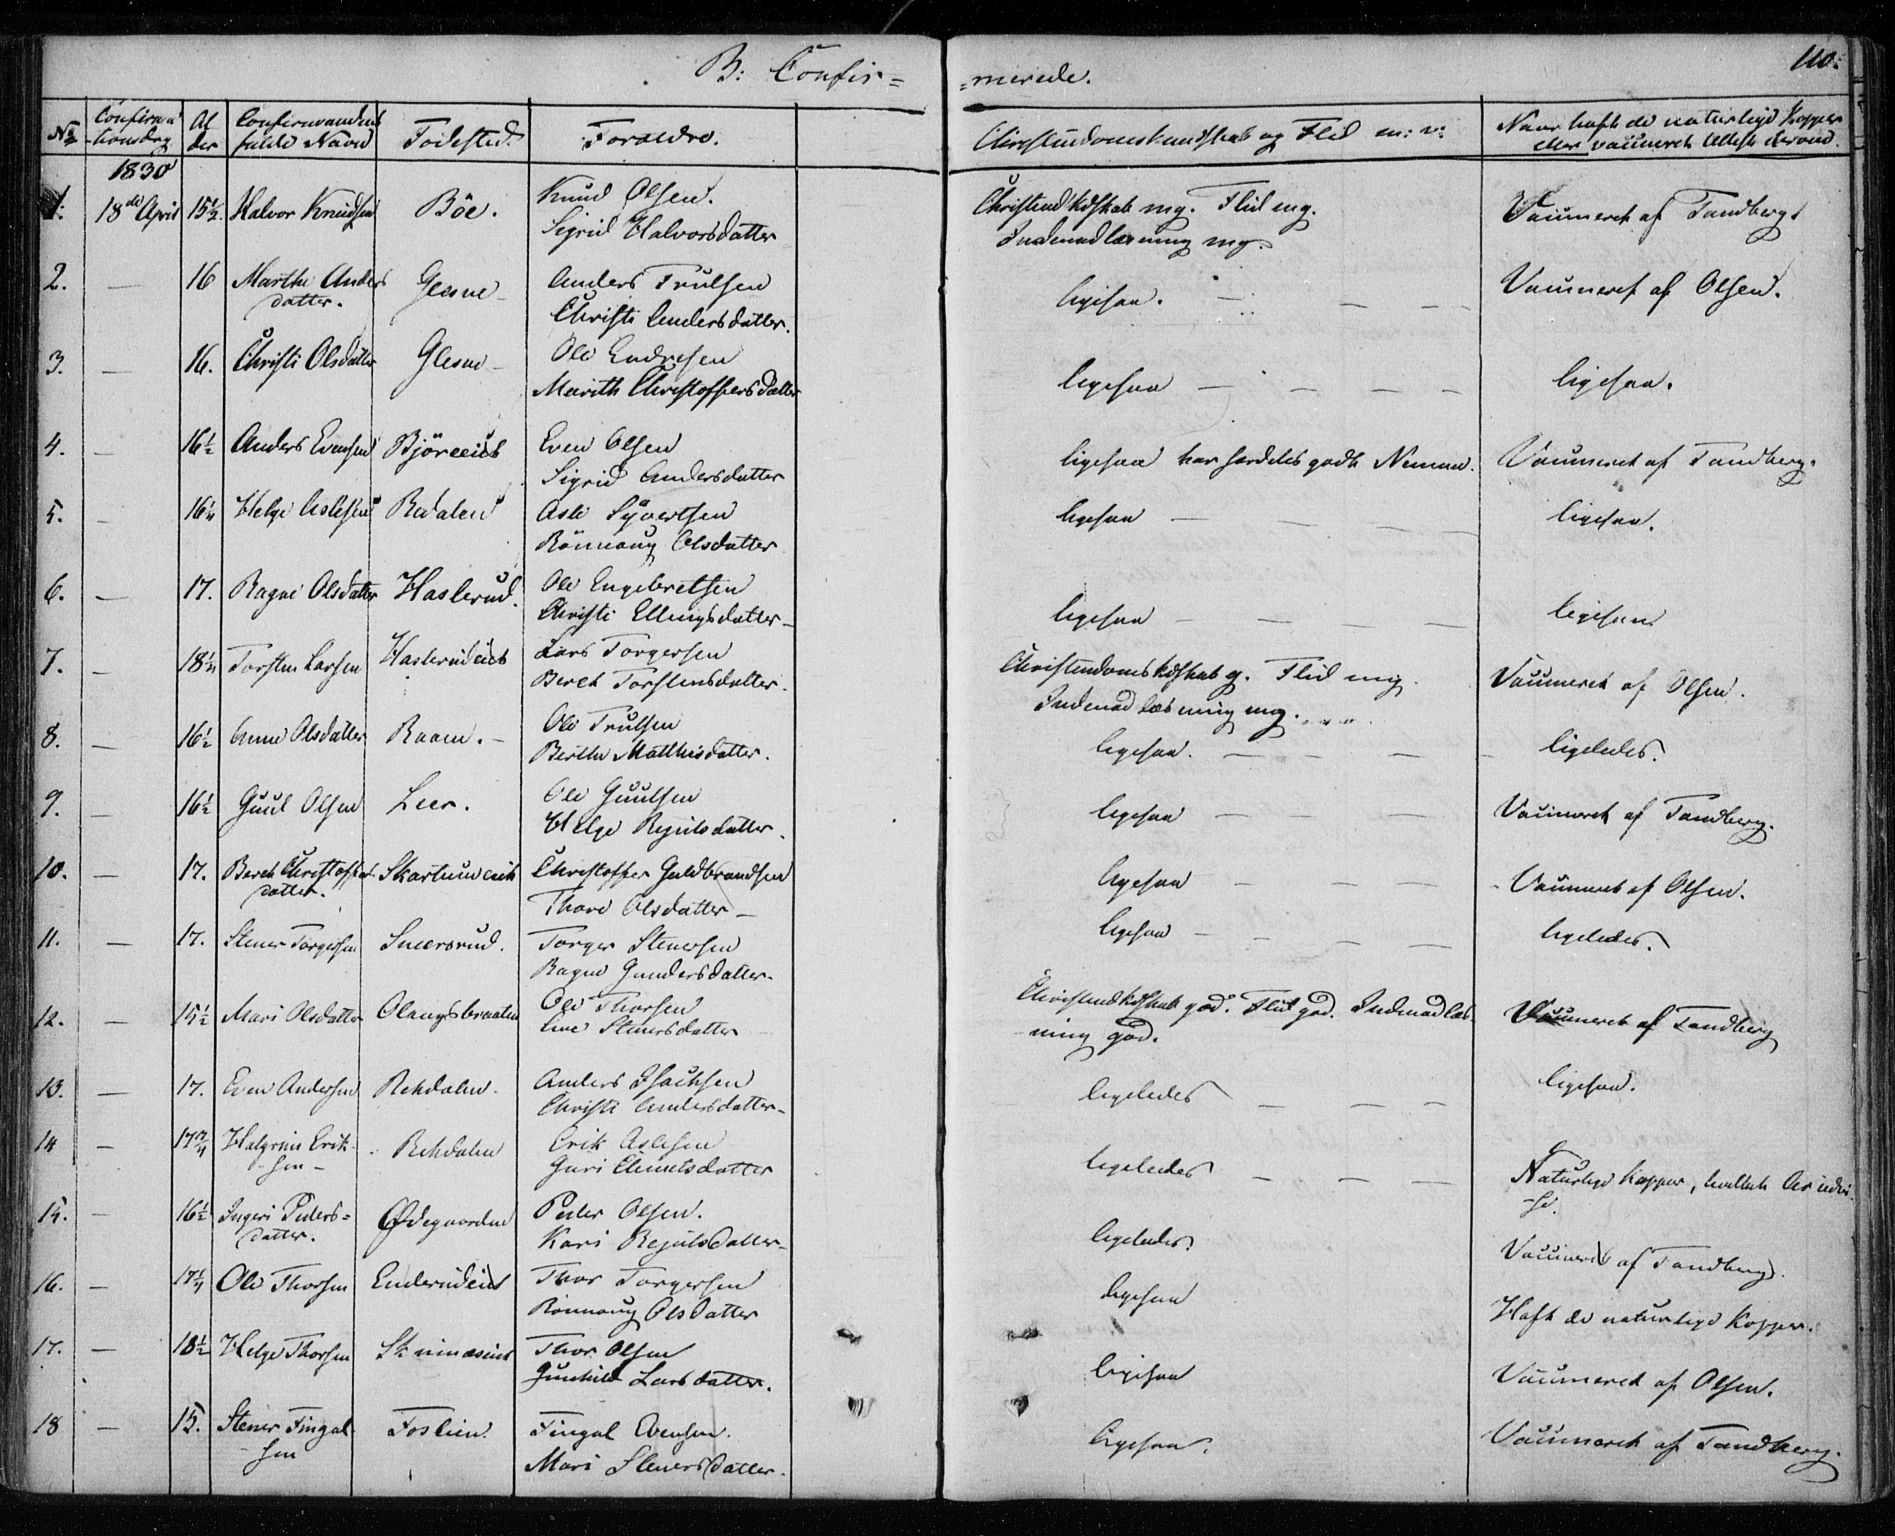 B: Confir=
=merede.
110:
No
Confirma
tionsdag
Al
der
Confirmandens
fulde Navn
Födested.
Forældre.
Christendomskundskab og Flid m: v:
Naar hafte de naturlige Kopper
eller vaccineret Attest derom.
1830
1.
18de April
15½
Halvor Knudsen
Böe.
Knud Olsen.
Sigrid Halvorsdatter
Christendkdskab mg. Flid mg.
Indenadlæsning mg.
Vaccineret af Tandberg
2.
—
16
Marthe Anders
datter.
Glesne
Anders Trulsen
Christi Andersdatter.
ligesaa.
Vaccineret af Olsen.
3.
—
16.
Christi Olsdatter
Glesne
Ole Endresen
Marith Christoffersdatter
ligesaa
ligesaa.
4.
—
16½
Anders Evensen
Even Olsen
Sigrid Andersdatter
ligesaa har særdeles godt Nemme.
Vaccineret af Tandberg.
5.
—
16¼
Helge Aslesen
Redalen
Asle Syvertsen
Rönnaug Olsdatter
ligesaa
ligesaa.
6.
—
17.
Ragne Olsdatter
Haslerud.
Ole Engebretsen
Christi Ellingsdatter
ligesaa
ligesaa
7.
—
18¼
Torsten Larsen
Haslerudeiet
Lars Torgersen
Bereth Torstensdatter.
Christendomskdskab g. Flid mg.
Indenadlæsning mg.
Vaccineret af Olsen.
8.
—
16½
Anne Olsdatter
Raaen.
Ole Trulsen
Berthe Matthisdatter.
ligesaa.
ligeledes.
9.
—
16½
Guul Olsen
Leer.
Ole Guulsen
Helge Rejulsdatter.
ligesaa
Vaccineret af Tandberg.
10.
—
17.
Bereth Christoffers
datter.
Christoffer Guldbrandsen
Thore Olsdatter
ligesaa
Vaccineret af Olsen.
11.
—
17.
Stener Torgersen
Snersrud.
Torger Stenersen
Ragne Gundersdatter.
ligesaa
ligeledes.
12.
—
15½
Mari Olsdatter
Olangsbraaten
Ole Thorsen
Live Stenersdatter
Christendkdskab god. Flid god. Indenadlæs-
ning god.
Vaccineret af Tandberg
13.
—
17.
Even Andersen
Rehdalen
Anders Isachsen
Christi Andersdatter
ligeledes
ligesaa.
14
—
17¾
Halgrim Erik-
sen
Rehdalen
Erik Aslesen
Guri Clemetsdatter
ligeledes
Naturlige Kopper, hvilket Ar udvi-
se.
15.
—
16½
Ingeri Peders=
datter.
Ødegaarden
Peder Olsen.
Kari Rejulsdatter
ligeledes.
Vaccineret af Tandberg.
16.
—
17¼
Ole Thorsen
Enderudeiet
Thor Torgersen
Rönnaug Olsdatter
ligesaa
Haft de naturlige Kopper.
17.
—
18½
Helge Thorsen
Thor Olsen
Gunhild Larsdatter.
ligesaa
Vaccineret af Olsen.
18
—
15.
Stener Fingal-
sen
Foslien.
Fingal Evensen.
Mari Stenersdatter.
ligesaa.
Vaccineret af Tandberg.